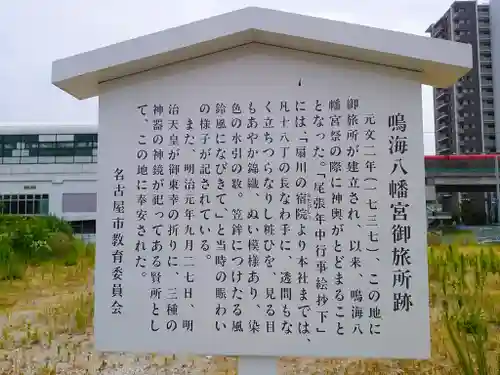 鳴海八幡宮御旅所跡
元文二年(一七三七)、この地に
御旅所が建立され、以来、鳴海八
幡宮祭の際に神輿がとどまること
となった。「尾張年中行事絵抄下」
には、「扇川の宿院より本社までは、
凡十八丁の長なわ手に、透間もな
く立ちつらなりし粧ひを、見る目
もあやか錦織、ぬい模様あり、染
色の水引の数。笠鉾につけたる風
鈴風になびきて」と当時の賑わい
の様子が記されている。
また、明治元年九月二七日、明
治天皇が御東幸の折りに、三種の
神器の神鏡が祀ってある賢所とし
て、この地に奉安された。
名古屋市教育委員会